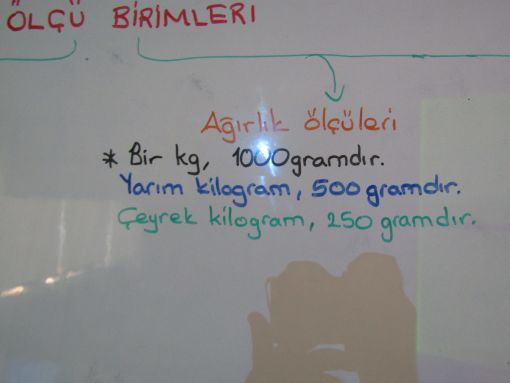 ÖLÇÜ BİRİMLERİ
Ağırlık ölçüleri
* Bir kg, 1000 gramdır.
Yarım kilogram, 500 gramdır.
Çeyrek kilogram, 250 gramdır.